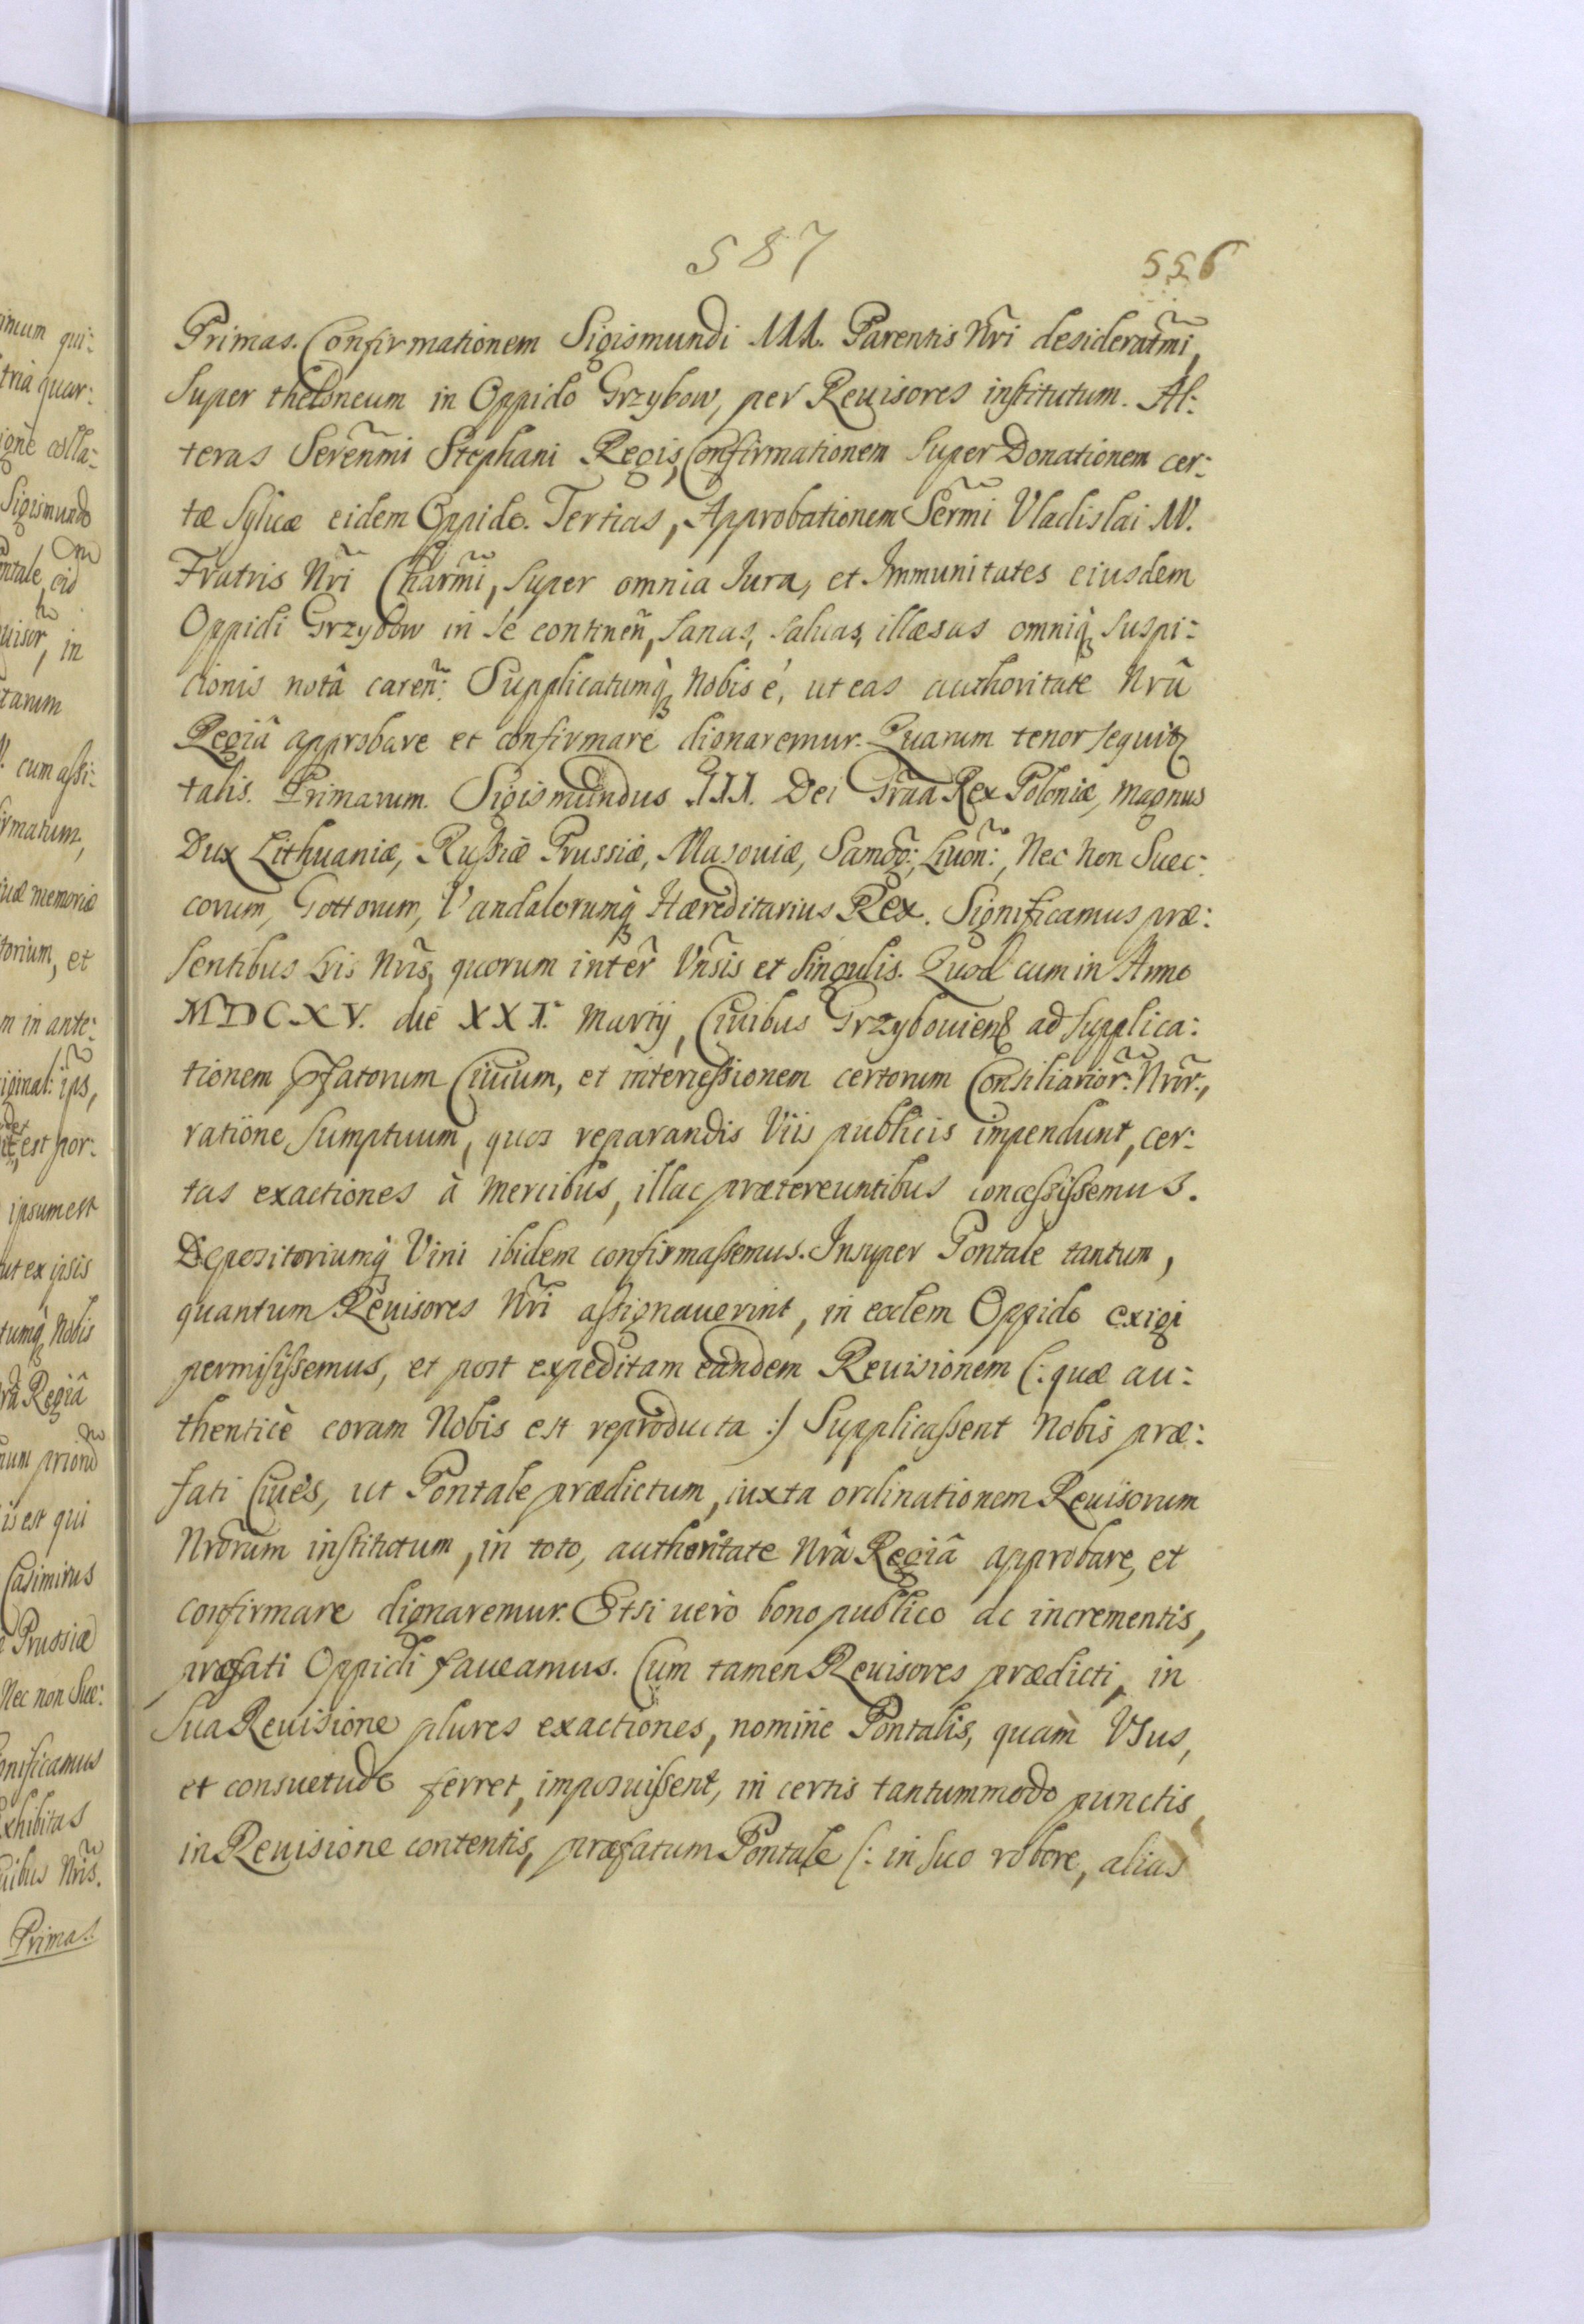 587
556
Primas. Confirmationem Sigismundi III. Parentis Nr̃i desideratm̃i,
super theloneum in Oppido Grzybow, per Reuisores institutum. Al:
teras Serenm̃i Stephani Regis, Confirmationem super Donationem cer:
tæ Syluæ eidem Oppido. Tertias, Approbationem Serm̃i Vladislai IV.
Fratris Nr̃i Charm̃i, super omnia Iura, et Immunitates eiusdem
Oppidi Grzybow in se continen̄, sanas, saluas, illæsas omniq̃ suspi:
cionis notâ caren̄: Supplicatumq̃ Nobis é, ut eas authoritate Nrâ
Regiâ approbare et confirmare dignaremur. Quarum tenor sequitꝫ
talis. Primarum. Sigismundus III. Dei Grãa Rex Poloniæ, Magnus
Dux Lithuaniæ, Russiæ Prussiæ, Masouiæ, Samog̃:, Liuoñ:, Nec Non Suec:
corum, Gottorum, Vandalorumq̃ Hæreditarius Rex. Significamus præ:
sentibus Lris Nr̃is, quorum inter̃ Vñsis et singulis. Quod cum in Anno
MDCXV. die XXI. Martij, Ciuibus Grzybouienß ad supplica:
tionem pfatorum Ciuium, et intercessionem certorum Consiliarior̃: Nror̃:,
ratione sumptuum, quos reparandis Viis publicis impendunt, cer:
tas exactiones à Mercibus, illac prætereuntibus concessissemus.
Depositoriumq̃ Vini ibidem confirmassemus. Insuper Pontale tantum,
quantum Reuisores Nr̃i assignauerint, in eodem Oppido exigi
permisissemus, et post expeditam eandem Reuisionem (: quæ au:
thenticè coram Nobis est reproducta :) Supplicassent Nobis præ:
fati Ciues, ut Pontale prædictum, iuxta ordinationem Reuisorum
Nrorum institutum, in toto, authoritate Nrâ Regiâ approbare, et
confirmare dignaremur. Etsi uerò bono publico ac incrementis,
præfati Oppidi faueamus. Cum tamen Reuisores prædicti, in
sua Reuisione plures exactiones, nomine Pontalis, quàm Vsus,
et consuetudo ferret, imposuissent, in certis tantummodo punctis,
in Reuisione contentis, præfatum Pontale (: in suo robore, alias